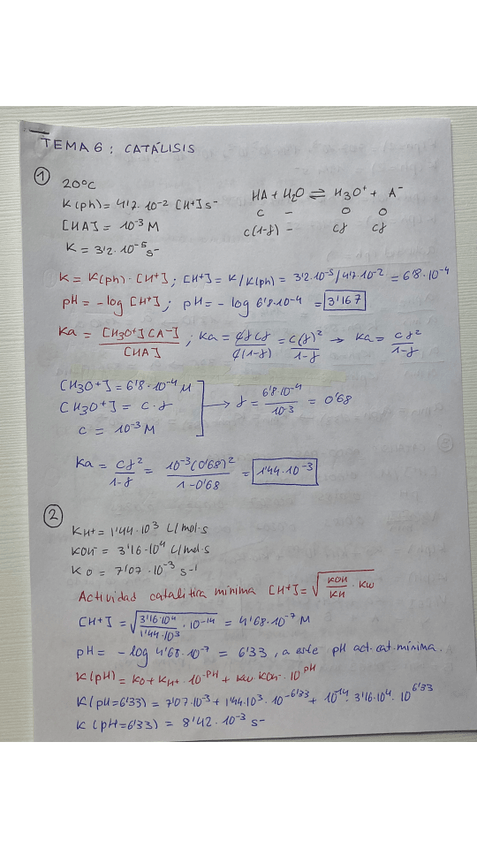 TEMA 6: CATÁLISIS
①
20°C
K(ph)= 4'7.10⁻² [H+] s-
[HA]= 10⁻³ M
K = 3'2.10⁻⁵ s-
HA + H₂O ⇌ H₃O⁺ + A⁻
c - 0 0
c(1-γ) - cγ cγ
K = K(ph)·[H+]; [H+]= K/K(ph) = 3'2.10⁻⁵/4'7.10⁻² = 6'8.10⁻⁴
pH = -log [H+]; pH = -log 6'8.10⁻⁴ = 3'167
Ka = [H3O+][A-]/[HA]; Ka = cγ cγ/c(1-γ) = c(γ)²/1-γ → Ka = cγ²/1-γ
[H3O+] = 6'8.10⁻⁴ M
[H3O+] = c·γ → γ = 6'8.10⁻⁴/10-3 = 0'68
c = 10⁻³ M
Ka = cγ²/1-γ = 10⁻³(0'68)²/1-0'68 = 1'44.10⁻³
②
KH+ = 1'44.10³ L/mol·s
KOH- = 3'16.10⁴ L/mol·s
K0 = 7'07.10⁻³ s-1
Actividad catalítica mínima [H+] = √(KOH/KH · Kw)
[H+] = √(3'16.10⁴/1'44.10³ · 10⁻¹⁴) = 4'68.10⁻⁷ M
pH = -log 4'68.10⁻⁷ = 6'33, a este pH act. cat. mínima.
K(pH) = K0 + KH+ · 10⁻ᵖᴴ + Kw·KOH- · 10ᵖᴴ
K(pH=6'33) = 7'07.10⁻³ + 1'44.10³ · 10⁻⁶'³³ + 10⁻¹⁴ · 3'16.10⁴ · 10⁶'³³
K(pH=6'33) = 8'42.10⁻³ s-